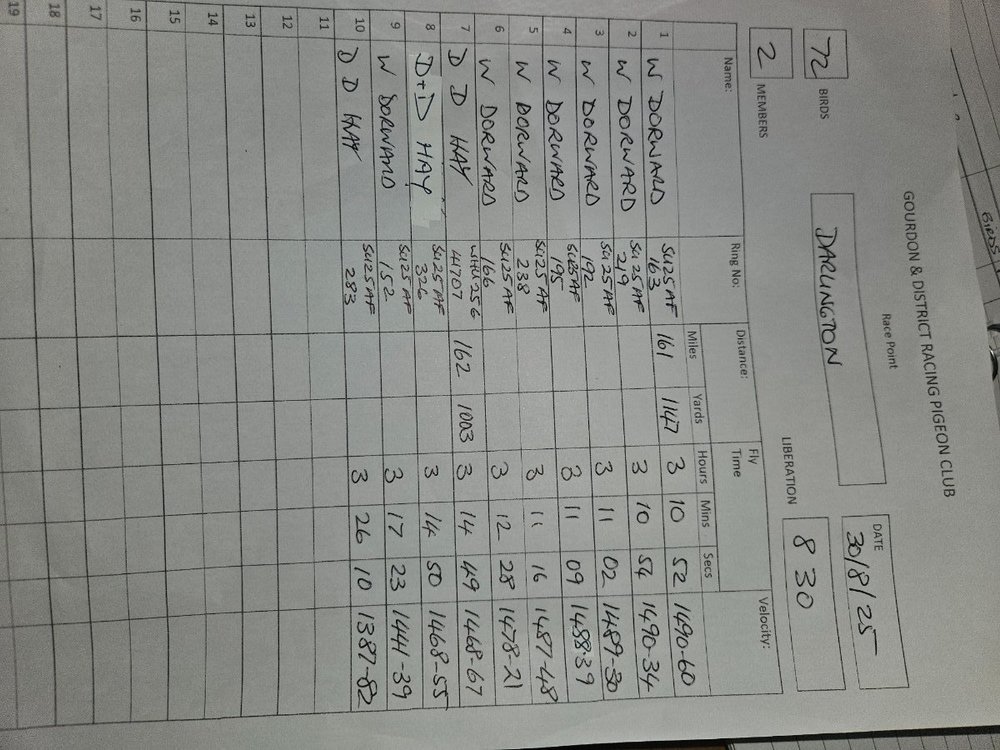 GOURDON & DISTRICT RACING PIGEON CLUB
Race Point
DATE
72 BIRDS
DARLINGTON
30/8/25
2 MEMBERS
LIBERATION
8 30
Name: Ring No: Distance: Fly Time Velocity:
Miles Yards Hours Mins Secs
1 W DORWARD SU25AF 163 161 1147 3 10 52 1490-60
2 W DORWARD SU25AF 219 3 10 54 1490-34
3 W DORWARD SU25AF 192 3 11 02 1489-30
4 W DORWARD SU25AF 195 3 11 09 1488-39
5 W DORWARD SU25AF 238 3 11 16 1487-48
6 W DORWARD SU25AF 166 3 12 28 1478-21
7 D D HAY WHU256 41707 162 1003 3 14 49 1468-67
8 D+D HAY SU25AF 326 3 14 50 1468-55
9 W DORWARD SU25AF 152 3 17 23 1441-39
10 D D HAY SU25AF 283 3 26 10 1387-82
11
12
13
14
15
16
17
18
19